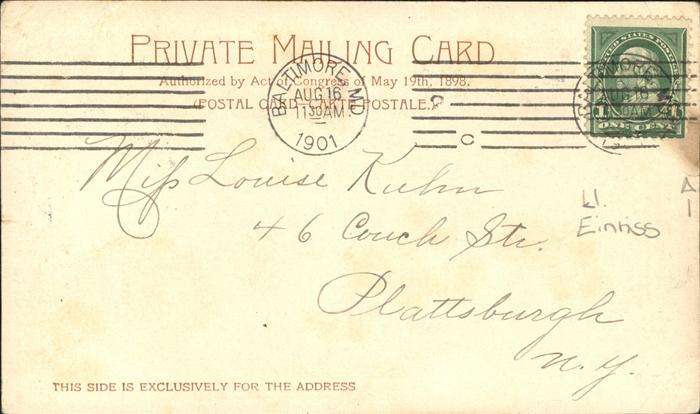 PRIVATE MAILING CARD
Authorized by Act of Congress of May 19th, 1898.
(POSTAL CARD—CARTE POSTALE.)
BALTIMORE, MD
AUG 16
11 30 AM
1901
C
UNITED STATES POSTAGE
1 1
ONE CENT
Miss Louise Kuhn
46 Couch Str.
Plattsburgh
N.Y.
kl.
Einriss
THIS SIDE IS EXCLUSIVELY FOR THE ADDRESS